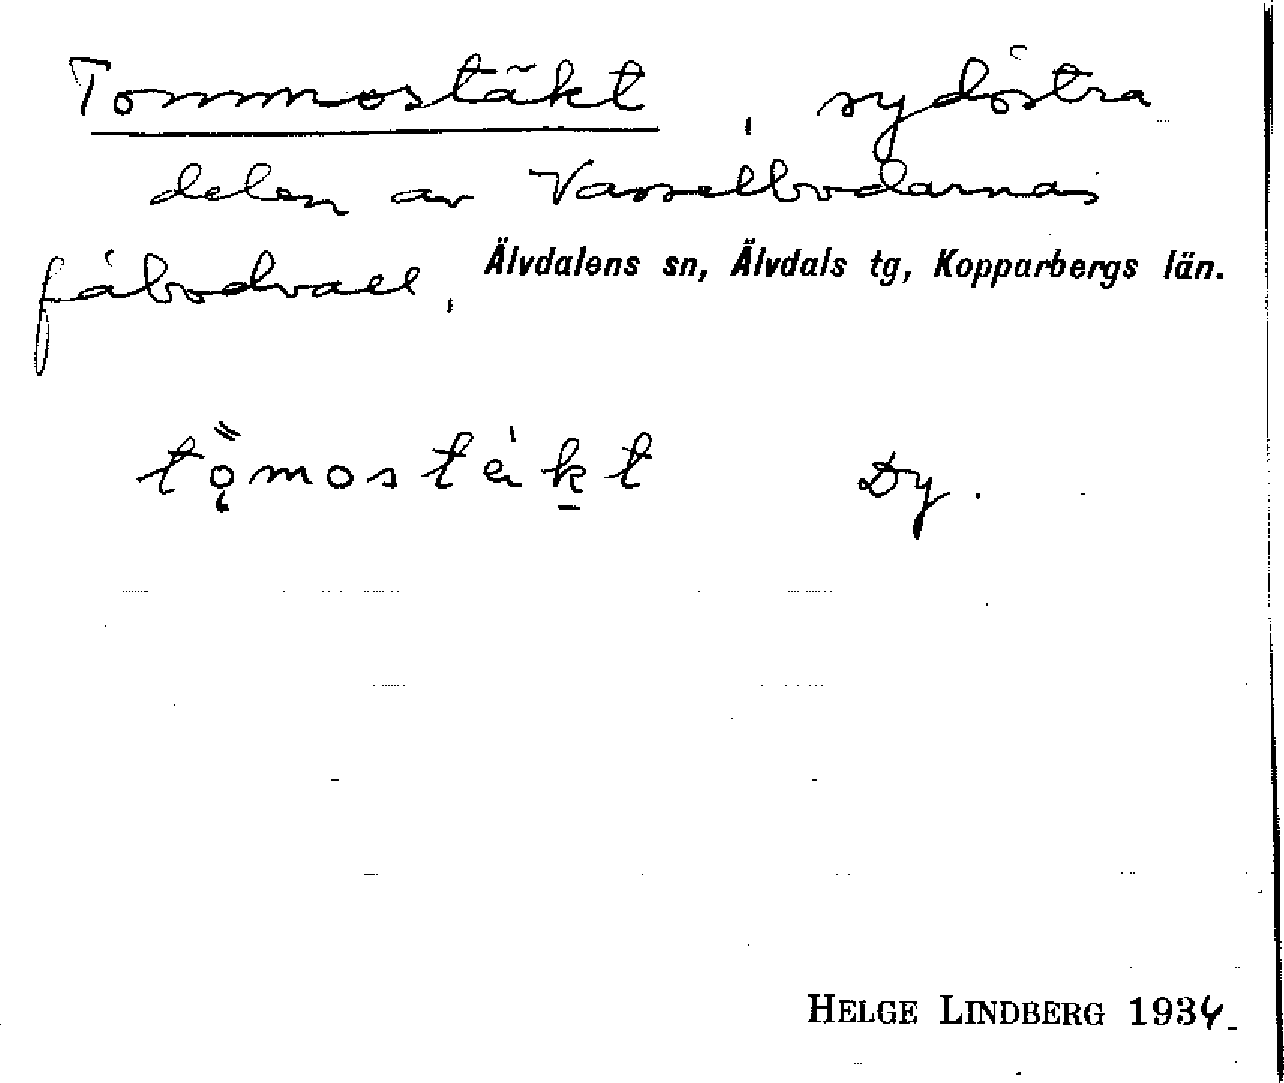 Tommostäkt, sydöstra
delen av Vasselbodarnas
fäbodvall. Älvdalens sn, Älvdals tg, Kopparbergs län.
tǫ̈mostäkt Dy.
HELGE LINDBERG 1934